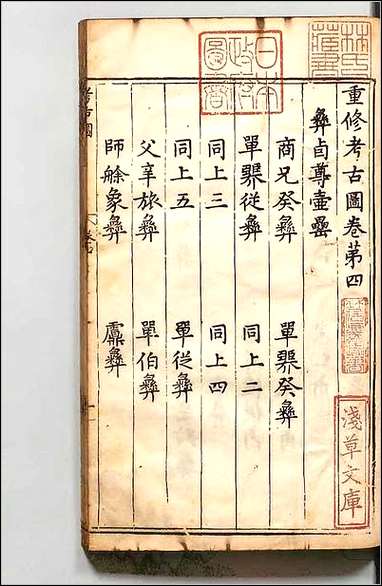 重修考古圖卷第四
彝卣尊壺罍
商兄癸彝 單癸彝
單從彝 同上二
同上三 同上四
同上五 單從彝
父辛旅彝 單伯彝
師艅象彝 彝
考古圖
日本
政府
圖書
林氏
藏書
淺草文庫